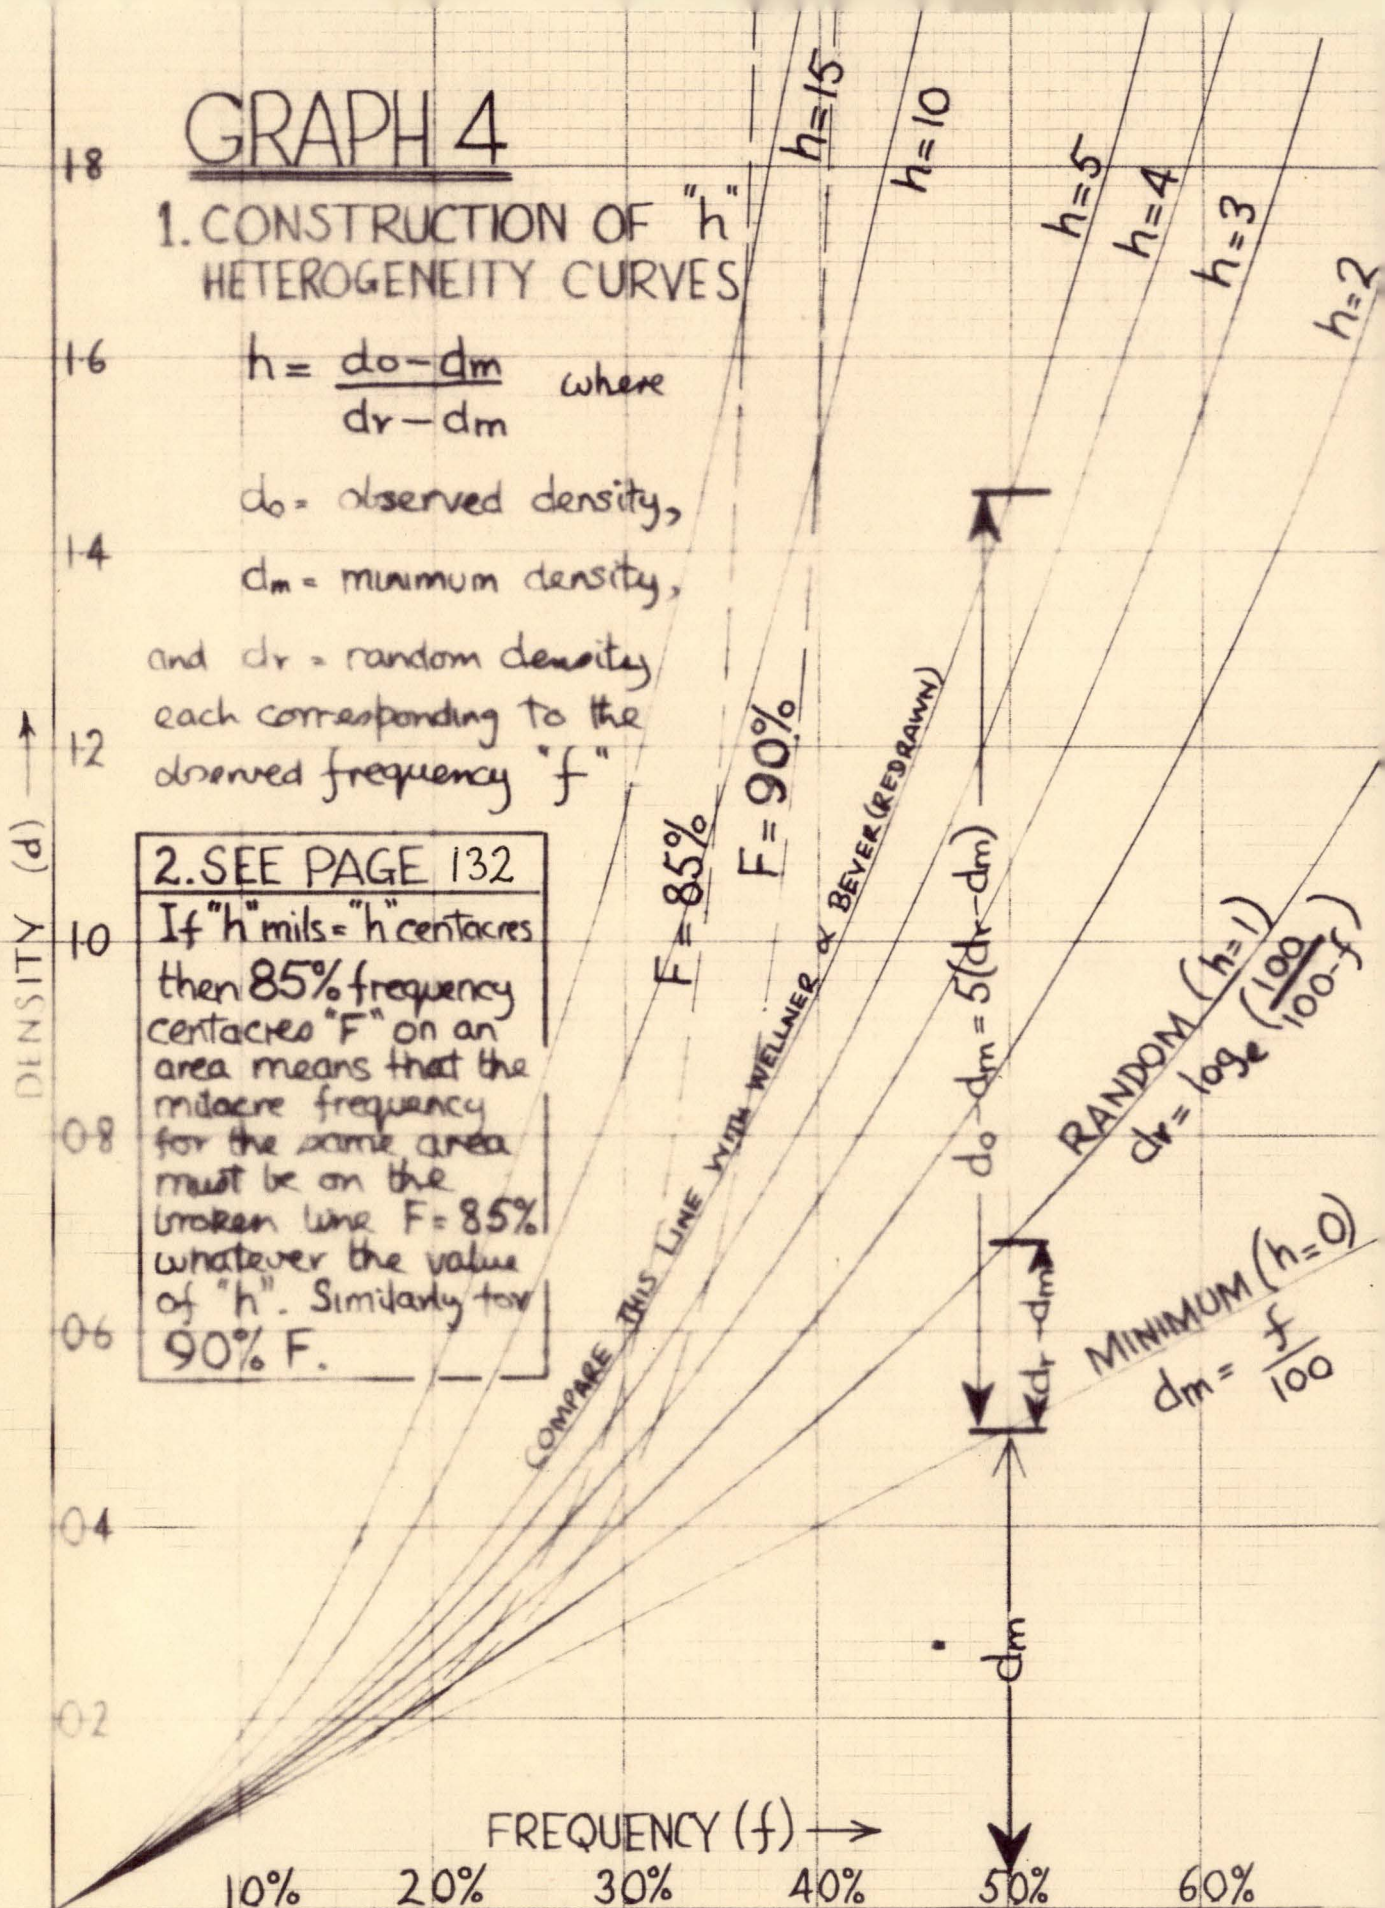 GRAPH 4
1. CONSTRUCTION OF "h"
HETEROGENEITY CURVES
h = do-dm
dr-dm
where
do = observed density,
dm = minimum density,
and dr = random density
each corresponding to the
observed frequency "f"
2. SEE PAGE 132
If "h" mils = "h" centacres
then 85% frequency
centacres "F" on an
area means that the
milacre frequency
for the same area
must be on the
broken line F=85%
whatever the value
of "h". Similarly for
90% F.
h=15
h=10
h=5
h=4
h=3
h=2
F=85%
F=90%
COMPARE THIS LINE WITH WELLNER & BEVER (REDRAWN)
do-dm = 5(dr-dm)
RANDOM (h=1)
dr = loge (100
100-f)
dr-dm
MINIMUM (h=0)
dm = f
100
dm
DENSITY (d)
1·8
1·6
1·4
1·2
1·0
0·8
0·6
0·4
0·2
FREQUENCY (f)
10% 20% 30% 40% 50% 60%